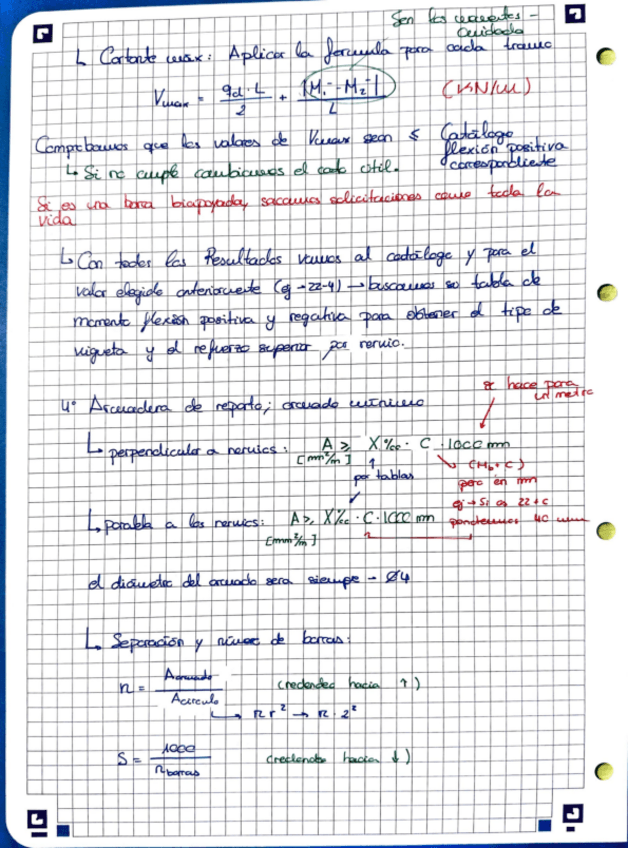 Son los croquetes -
Cuidado
↳ Cortante max: Aplicar la formula para cada tramo
Vmax = qd · L / 2 + |M1⁻ - M2⁻| / L (KN/m)
Comprobamos que los valores de Vmax sean ≤ Catálogo
flexión positiva
correspondiente
↳ Si no cumple cambiamos el canto útil.
Si es una barra biapoyada, sacamos solicitaciones como toda la
vida
↳ Con todos los Resultados vamos al catálogo y para el
valor elegido anteriormente (ej → 22-4) → buscamos su tabla de
momento flexión positiva y negativa para obtener el tipo de
vigueta y el refuerzo superior por nervio.
4º Armadura de reparto; armado mínimo
se hace para
un metro
↳ perpendicular a nervios: A ≥ X‰ · C · 1000 mm
[mm²/m]
(Hb+C)
por tablas
pero en mm
ej → Si es 22+c
pondremos 40 mm
↳ paralela a los nervios: A ≥ X‰ · C · 1000 mm
[mm²/m]
el diámetro del armado sera siempre - Ø4
↳ Separación y número de barras:
n = Aarmado / Acirculo (redondeo hacia ↑)
↳ π r² → π · 2²
S = 1000 / nbarras (redondeo hacia ↓)